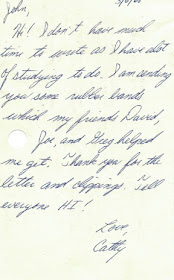 John,
Hi! I don't have much
time to wrote as I have alot
of studying to do. I am sending
you some rubber bands
which my friends David,
Joe, and Greg helped
me get. Thank you for the
letter and clippings. Tell
everyone HI!
Love,
Cathy